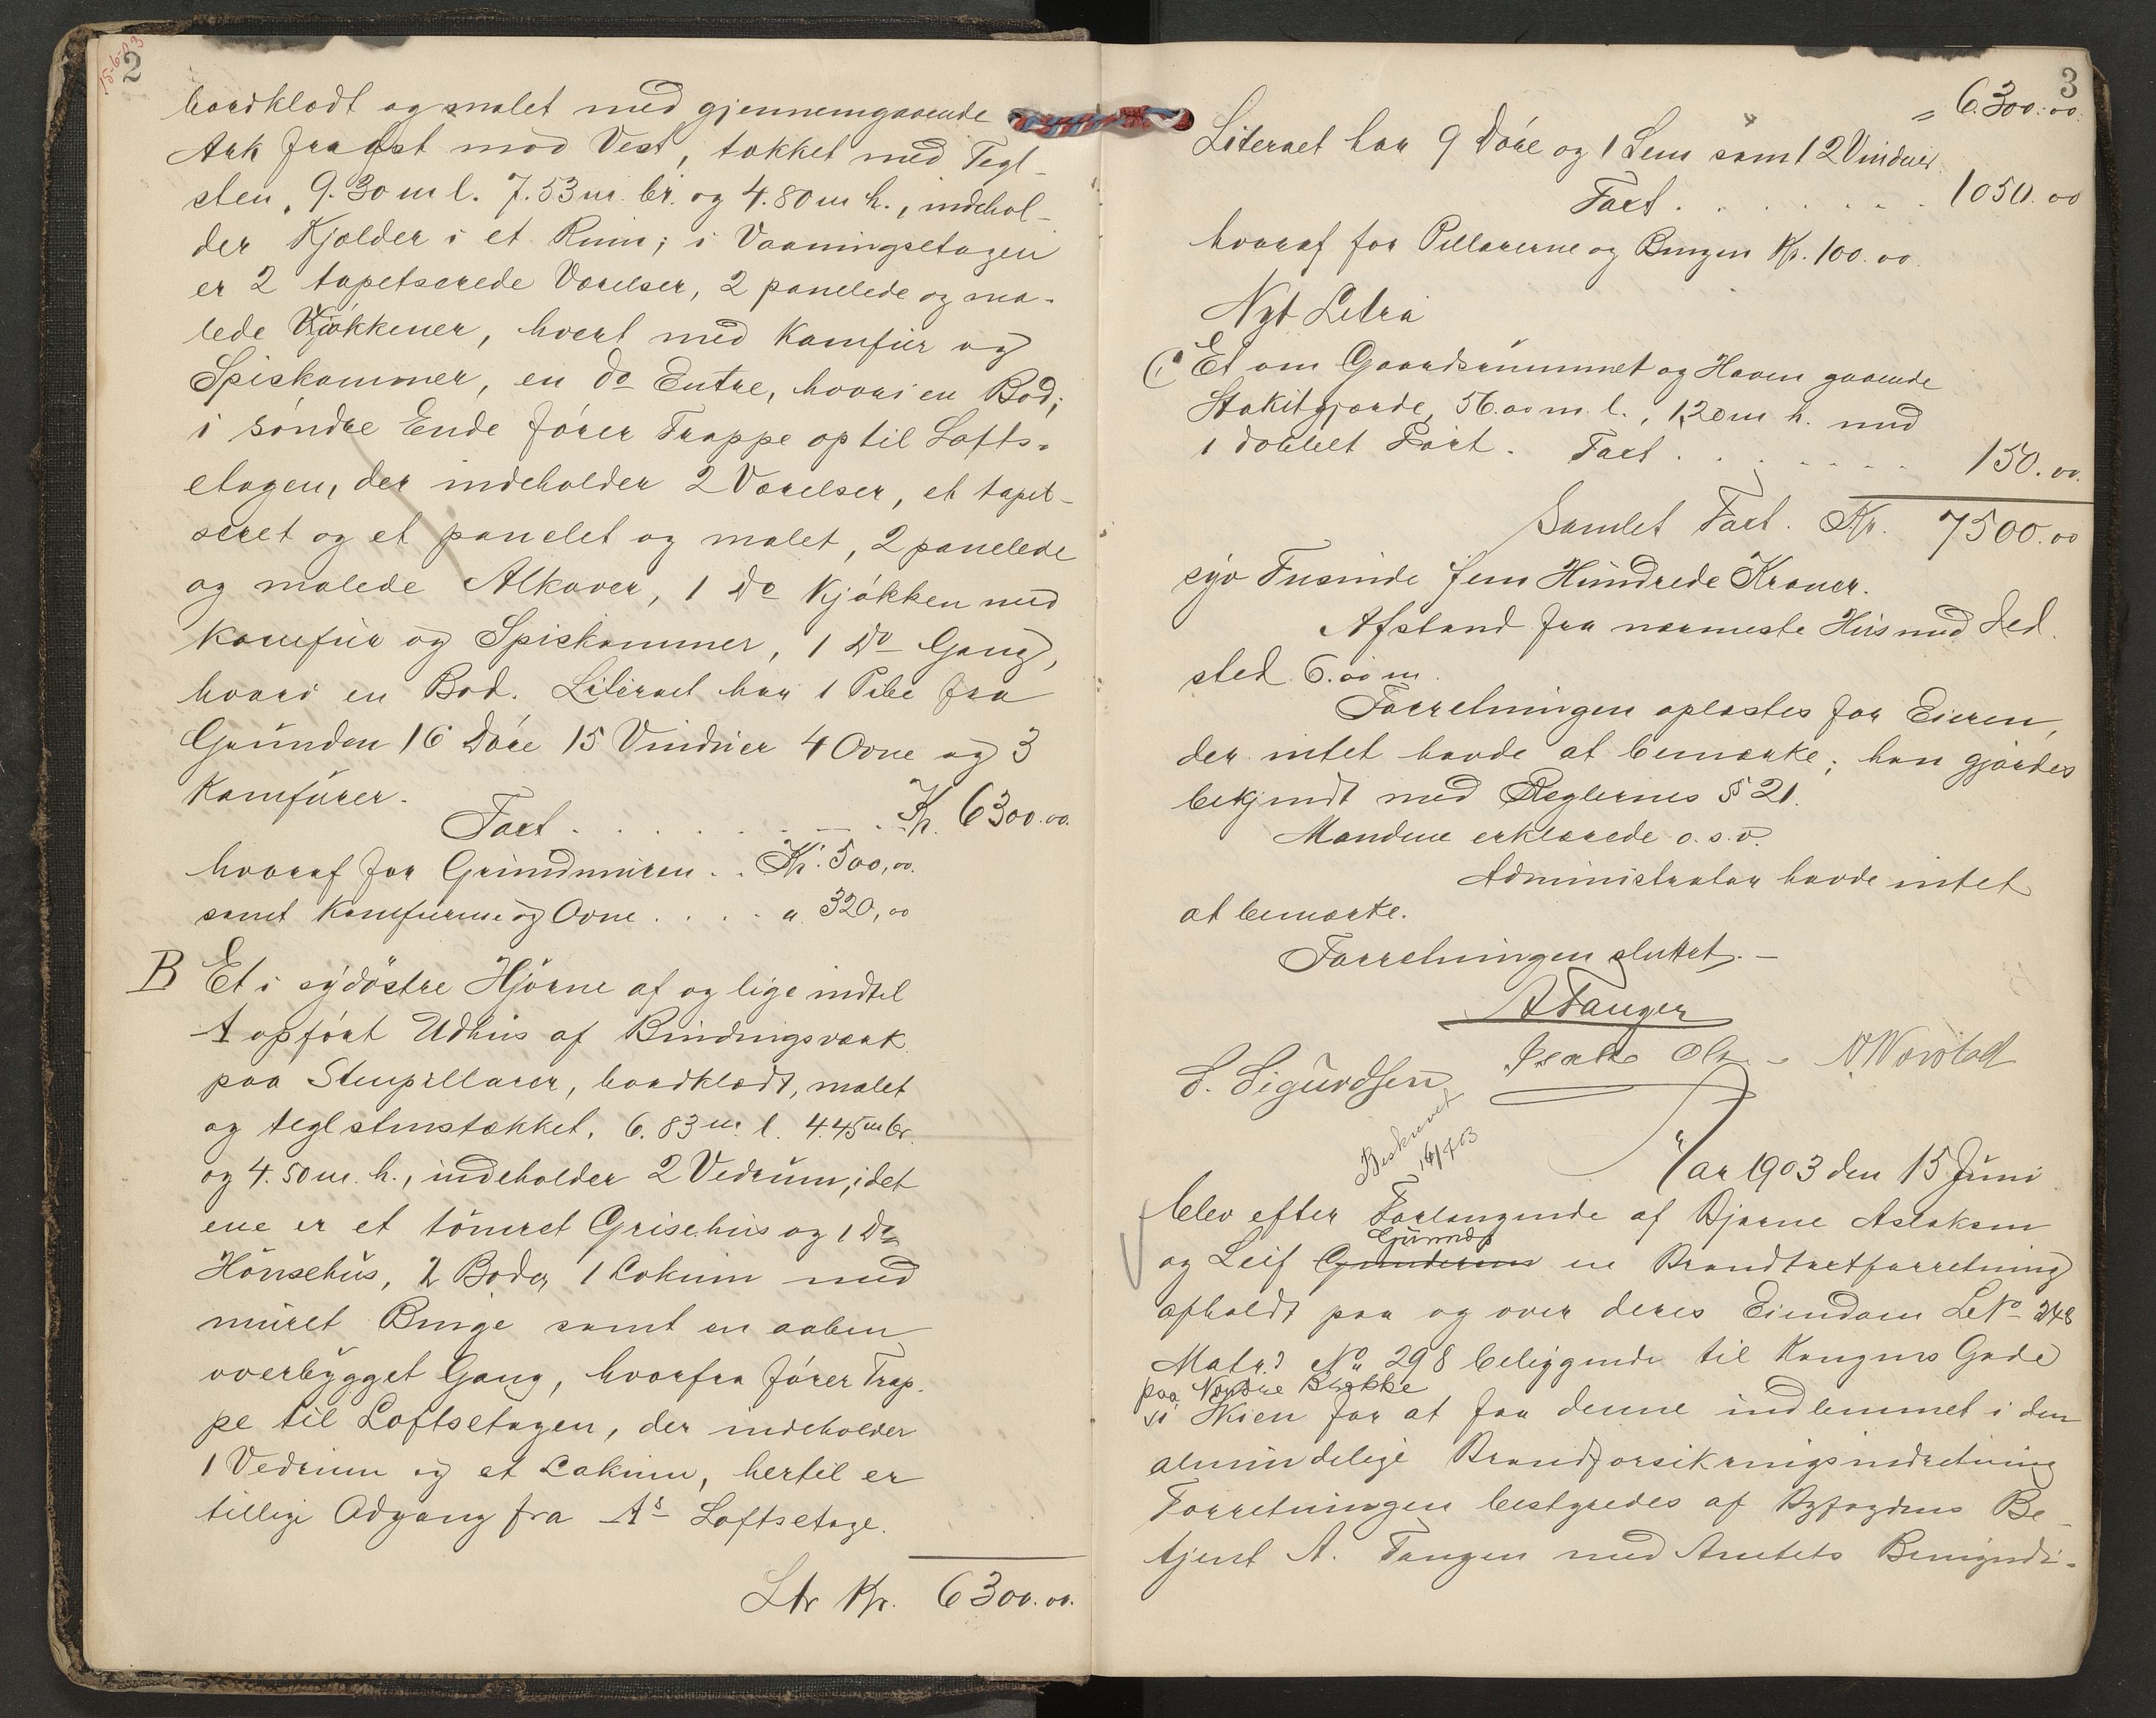 15-6-03
2
bordklædt og malet med gjennemgaaende
Ark fra Øst mod Vest, tækket med Tegl-
sten, 9.30 m l. 7.53 m. br. og 4.80 m h., indehol-
der Kjælder i et Rum; i Vaaningsetagen
er 2 tapetserede Værelser, 2 panelede og ma-
lede Kjøkkener, hvert med Komfür og
Spiskammer, en Do Entre, hvori en Bod;
i søndre Ende fører Trappe op til Lofts-
etagen, der indeholder 2 Værelser, et tapet-
seret og et panelet og malet, 2 panelede
og malede Alkover, 1 Do Kjøkken med
Komfür og Spiskammer, 1 Do Gang,
hvori en Bod. Literaet har 1 Pibe fra
Grunden 16 Døre 15 Vinduer 4 Ovne og 3
Komfürer.
Taxt . . . . . . . Kr. 6300.00.
hvoraf for Grundmuren . . Kr. 500,00.
samt Komfurene og Ovne . . . . " 320,00
B Et i sydøstre Hjørne af og lige indtil
A opført Udhus af Bindingsværk
paa Stenpillarer, bordklædt, malet
og teglstenstækket, 6.83 m. l. 4.45 m br.
og 4.50 m. h., indeholder 2 Vedrum, i det
ene er et tømret Grisehus og 1 Do
Hønsehus, 2 Boder 1 Lokum med
muret Binge samt en aaben
overbygget Gang, hvorfra fører Trap-
pe til Loftsetagen, der indeholder
1 Vedrum og et Lokum, hertil er
tillige Adgang fra A's Loftsetage.
Ltr Kr. 6300.00.
3
= 6300.00.
Literaet har 9 Døre og 1 Lem samt 2 Vinduer.
Taxt . . . . . . . 1050.00
hvoraf for Pillarerne og Bingen Kr. 100.00
Nyt Litra
C Et om Gaardsrummet og Haven gaaende
Stakitgjærde, 56.00 m. l., 1,20 m h. med
1 dobbelt Port. Taxt . . . . . . 150.00.
Samlet Taxt. Kr. 7500.00
syv Tusinde fem Hundrede Kroner.
Afstand fra nærmeste Hus med Ild-
sted 6.00 m.
Forretningen oplæstes for Eieren,
der intet havde at bemærke; han gjordes
bekjendt med Reglernes § 21.
Mændene erklærede o.s.v.
Administrator havde intet
at bemærke.
Forretningen sluttet. —
A Tangen
S. Sigurdsen Isak N. Worstad
Beskrevet
16/7 03
Aar 1903 den 15 Juni
blev efter Forlangende af Bjarne Aslaksen
Gurnds
og Leif en Brandtaxtforretning
afholdt paa og over deres Eiendom LNo 248
Matr. No 298 beliggende til Kongens Gade
paa Nordre Brekke
i Skien for at faa denne indlemmet i den
almindelige Brandforsikringsindretning
Forretningen bestyredes af Byfogdens Be-
tjent A. Tangen med Amtets Bemyndi-